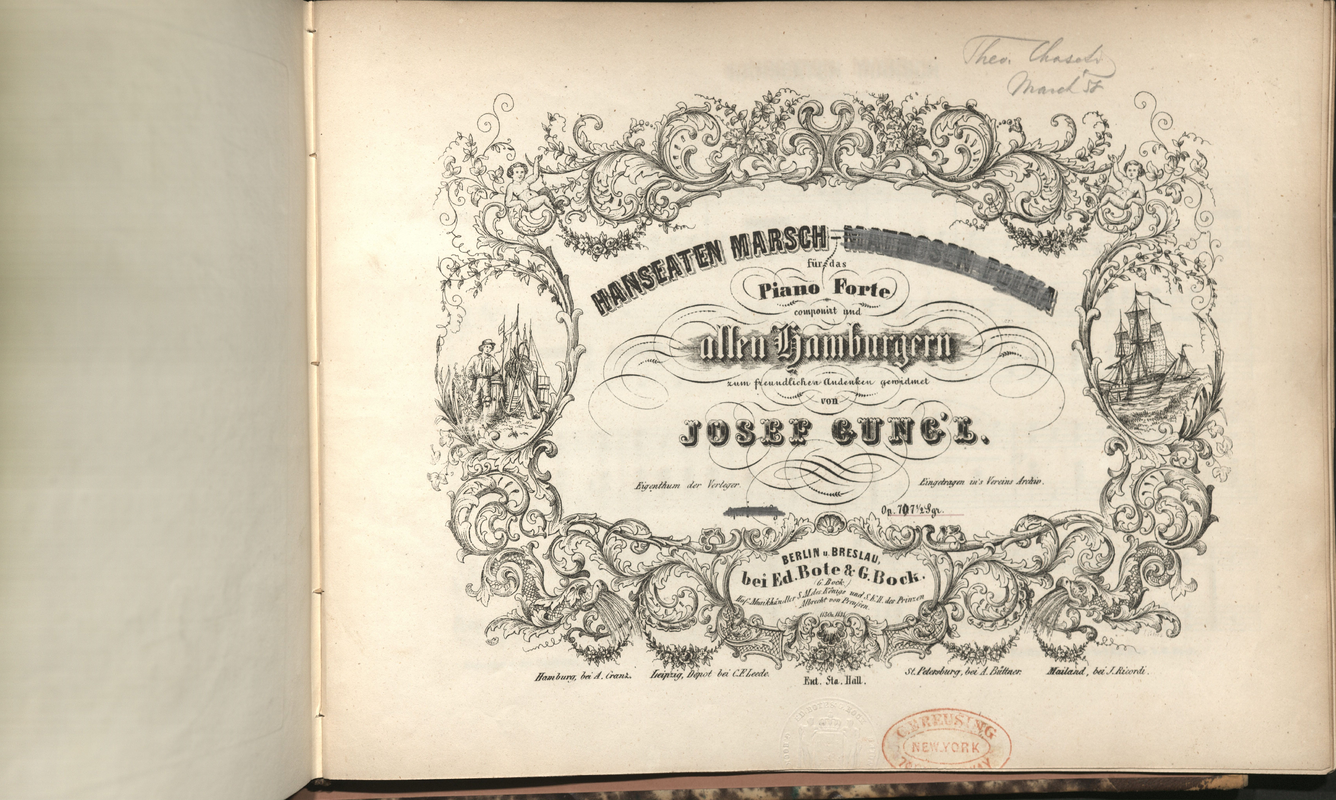 Theo.
March
HANSEATEN MARSCH - MATROSEN-POLKA
für das
Piano Forte
componirt und
allen Hamburgern
zum freundlichen Andenken gewidmet
von
JOSEF GUNG'L.
Eigenthum der Verleger. Eingetragen in's Vereins Archiv.
Op. 70 7½ Sgr.
BERLIN u. BRESLAU,
bei Ed. Bote & G. Bock.
(G. Bock)
Hof-Musikhändler S.M. des Königs und S.K.H. des Prinzen
Albrecht von Preußen.
Hamburg, bei A. Cranz. Leipzig, Depot bei C.F. Leede. St. Petersburg, bei A. Büttner. Mailand, bei J. Ricordi.
Ent. Sta. Hall.
C. BREUSING
NEW.YORK